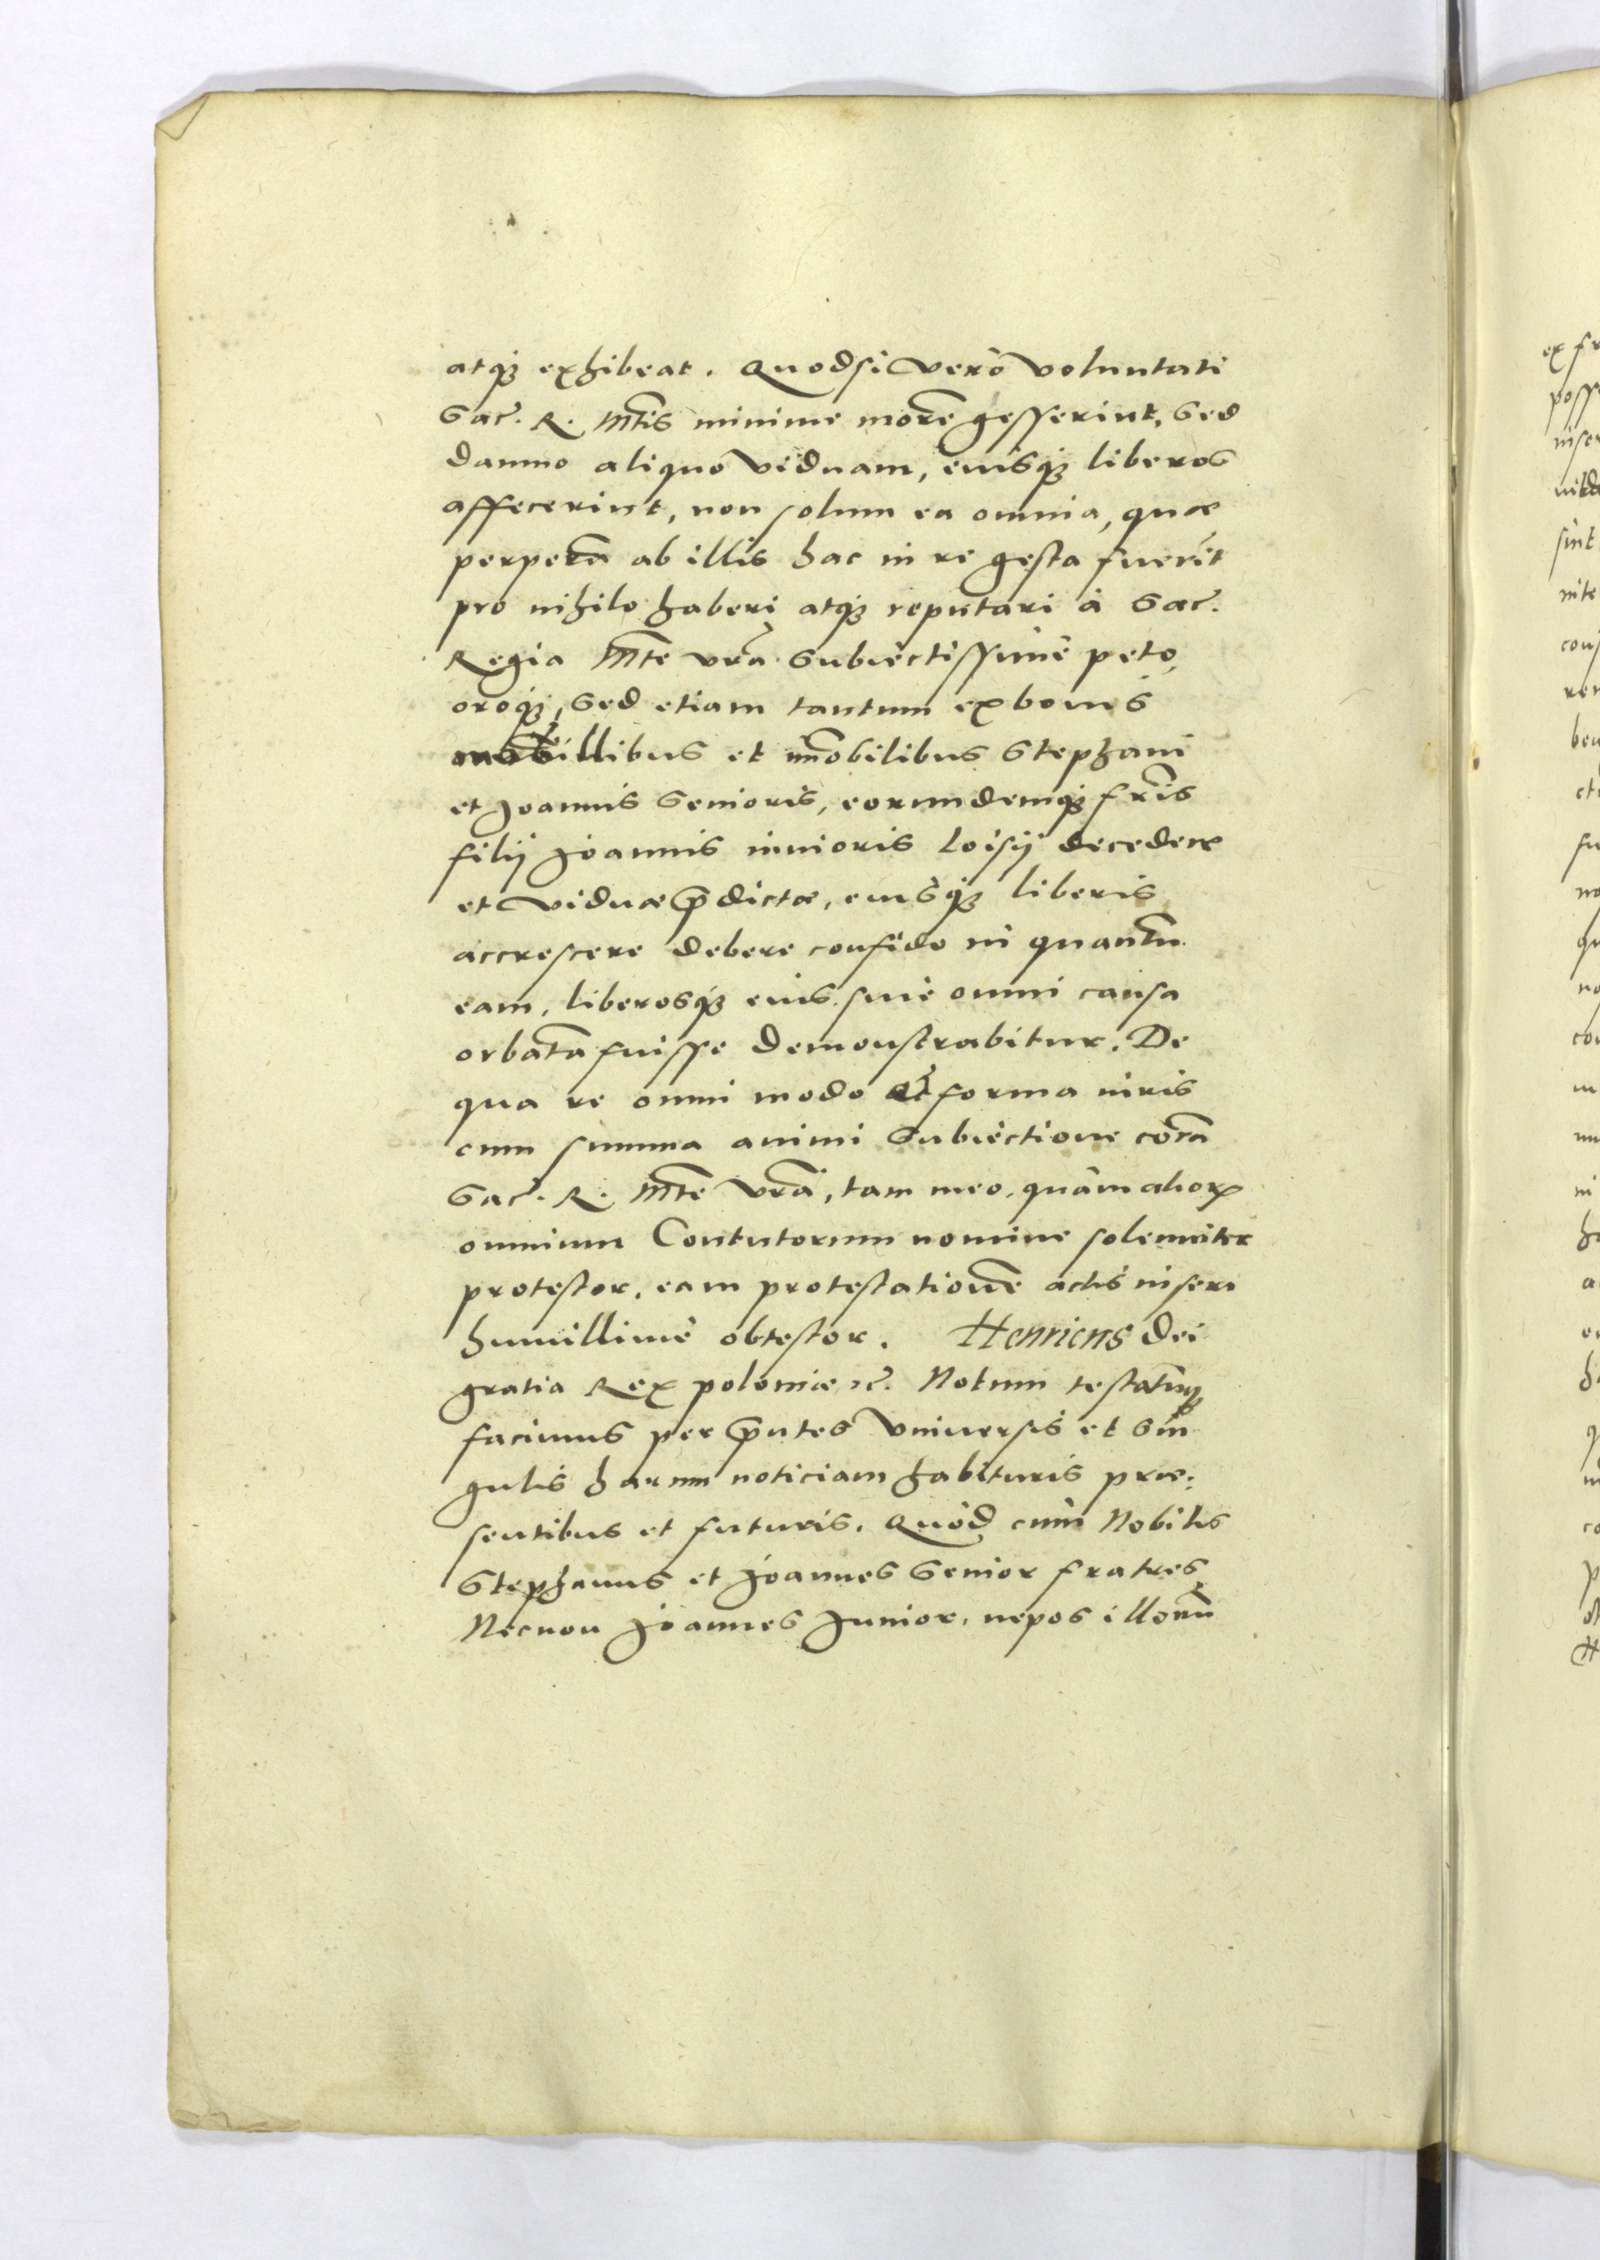 atq̃ exhibeat. Quodsi verò voluntati
Sac̃. R. Mtis minime morẽ gesserint, sed
damno aliquo viduam, eiusq̃ liberos
affecerint, non solum ea omnia, quæ
perperã ab illis hac in re gesta fuerit
pro nihilo haberi atq̃ reputari à Sac̃.
Regia Mte vrã subiectissimè peto,
oroq̃, sed etiam tantum ex bonis
mobillibus et im̃obilibus Stephani
et Joannis Senioris, eorundemq̃ fr̃is
filij Joannis iunioris Loisij decedere
et viduæ p̃dictæ, eiusq̃ liberis
accrescere debere confido in quantũ
eam, liberosq̃ eius sine omni causa
orbatã fuisse demonstrabitur. De
qua re omni modo et forma iuris
cum summa animi subiectione corã
Sac̃. R. Mte vrã, tam meo, quàm aliorꝝ
omnium Contutorum nomine solemniter
protestor, eam protestationẽ actis inseri
humillimè obtestor. Henricus Dei
gratia Rex poloniæ ꝛc̃. Notum testatũq̃
facimus per p̃ntes Vniuersis et sin
gulis harum noticiam habituris præ:
sentibus et futuris. Quòd cùm Nobiles
Stephanus et Joannes Senior fratres
Necnon Joannes Junior, nepos illorũ